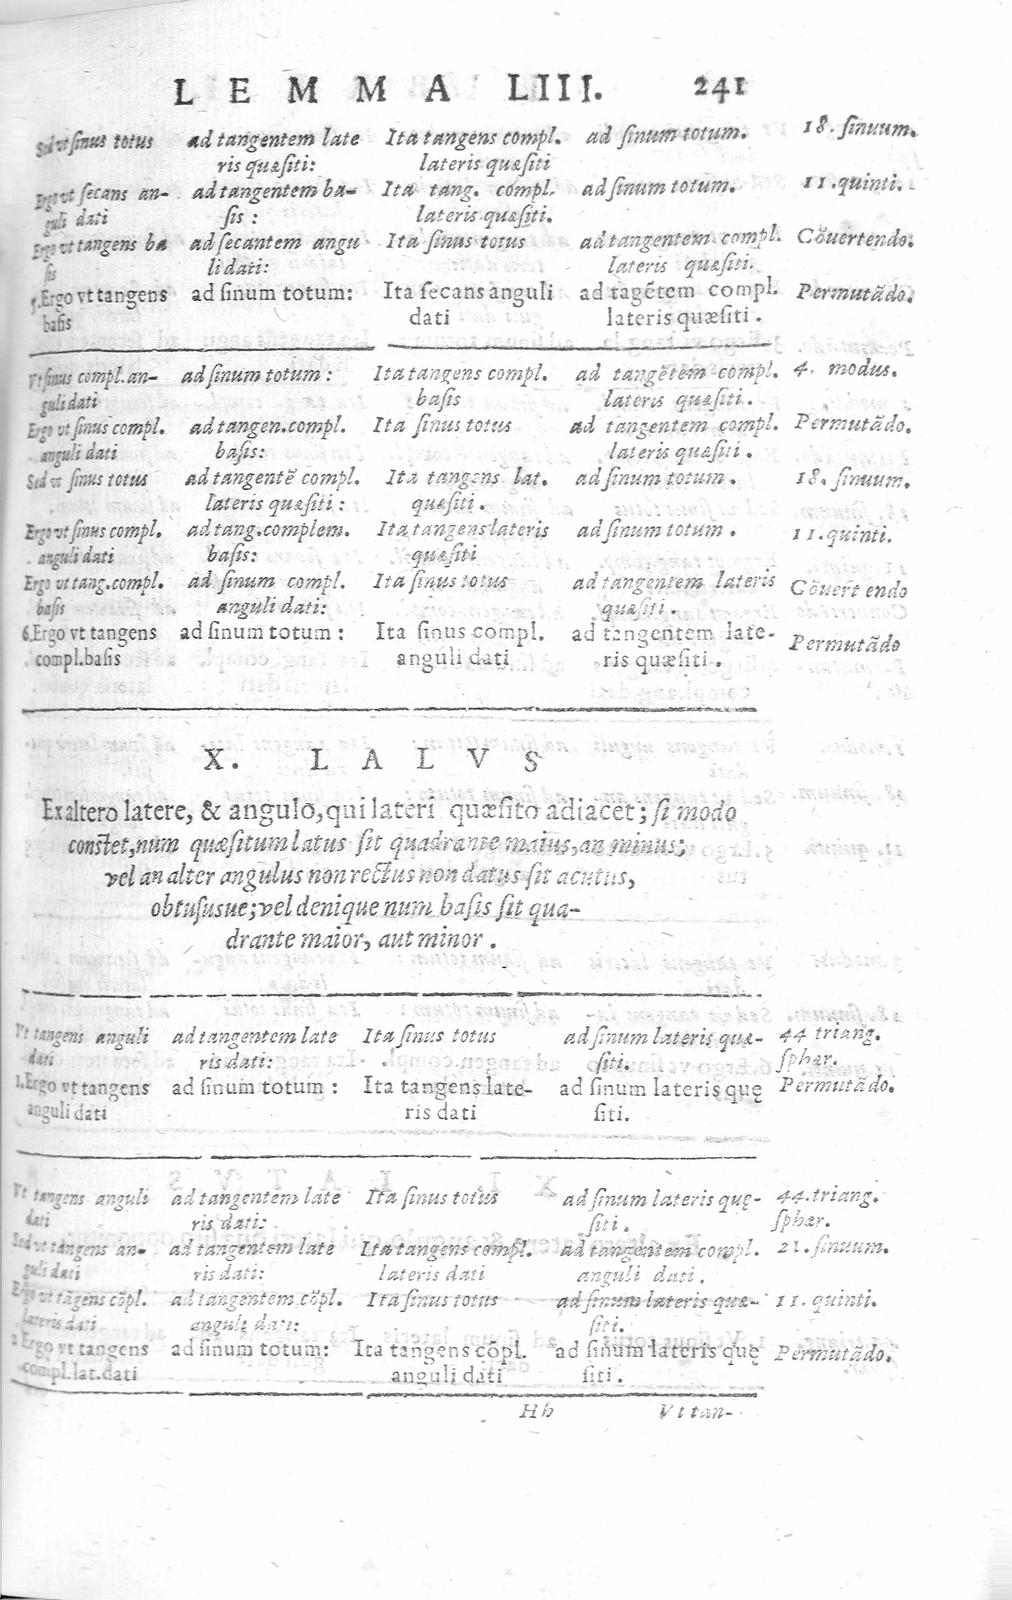 LEMMA LIII. 241
Sed vt sinus totus ad tangentem late Ita tangens compl. ad sinum totum. 18. sinuum.
ris quæsiti: lateris quæsiti
Ergo vt secans an- ad tangentem ba- Ita tang. compl. ad sinum totum. 11. quinti.
guli dati sis: lateris quæsiti.
Ergo vt tangens ba ad secantem angu Ita sinus totus ad tangentem compl. Cõuertendo.
sis li dati: lateris quæsiti.
5. Ergo vt tangens ad sinum totum: Ita secans anguli ad tagẽtem compl. Permutãdo.
basis dati lateris quæsiti.
Vt sinus compl. an- ad sinum totum: Ita tangens compl. ad tangẽtem compl. 4. modus.
guli dati basis lateris quæsiti.
Ergo vt sinus compl. ad tangen. compl. Ita sinus totus ad tangentem compl. Permutãdo.
anguli dati basis: lateris quæsiti.
Sed vt sinus totus ad tangentẽ compl. Ita tangens lat. ad sinum totum. 18. sinuum.
lateris quæsiti: quæsiti.
Ergo vt sinus compl. ad tang. complem. Ita tangens lateris ad sinum totum. 11. quinti.
anguli dati basis: quæsiti
Ergo vt tang. compl. ad sinum compl. Ita sinus totus ad tangentem lateris Cõuertendo
basis anguli dati: quæsiti.
6. Ergo vt tangens ad sinum totum: Ita sinus compl. ad tangentem late- Permutãdo
compl. basis anguli dati ris quæsiti.
X. LALVS
Ex altero latere, & angulo, qui lateri quæsito adiacet; si modo
constet, num quæsitum latus sit quadrante maius, an minus;
vel an alter angulus non rectus non datus sit acutus,
obtususue; vel denique num basis sit qua-
drante maior, aut minor.
Vt tangens anguli ad tangentem late Ita sinus totus ad sinum lateris quæ- 44 triang.
dati ris dati: siti. sphær.
1. Ergo vt tangens ad sinum totum: Ita tangens late- ad sinum lateris quę Permutãdo.
anguli dati ris dati siti.
Vt tangens anguli ad tangentem late Ita sinus totus ad sinum lateris quę- 44. triang.
dati ris dati: siti. sphær.
Sed vt tangens an- ad tangentem late Ita tangens compl. ad tangentem compl. 21. sinuum.
guli dati ris dati: lateris dati anguli dati.
Ergo vt tãgens cõpl. ad tangentem cõpl. Ita sinus totus ad sinum lateris quæ- 11. quinti.
lateris dati anguli dati: siti.
2. Ergo vt tangens ad sinum totum: Ita tangens cõpl. ad sinum lateris quę Permutãdo.
compl. lat. dati anguli dati siti.
Hh Vt tan-